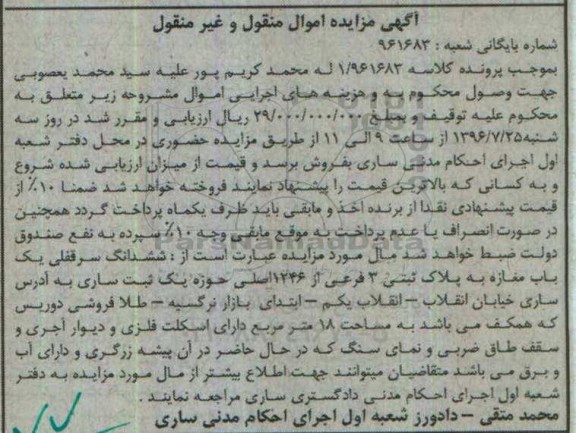 آگهی مزایده اموال منقول و غیر منقول
شماره بایگانی شعبه : ۹۶۱۶۸۳
بموجب پرونده کلاسه ۱/۹۶۱۶۸۳ له محمد کریم پور علیه سید محمد یعسوبی
جهت وصول محکوم به و هزینه های اجرایی اموال مشروحه زیر متعلق به
محکوم علیه توقیف و بمبلغ ۲۹/۰۰۰/۰۰۰/۰۰۰ ریال ارزیابی و مقرر شد در روز سه
شنبه۱۳۹۶/۷/۲۵ از ساعت ۹ الی ۱۱ از طریق مزایده حضوری در محل دفتر شعبه
اول اجرای احکام مدنی ساری بفروش برسد و قیمت از میزان ارزیابی شده شروع
و به کسانی که بالاترین قیمت را پیشنهاد نمایند فروخته خواهد شد ضمنا ۱۰٪ از
قیمت پیشنهادی نقدا از برنده اخذ و مابقی باید ظرف یکماه پرداخت گردد همچنین
در صورت انصراف یا عدم پرداخت به موقع مابقی وجه ۱۰٪ سپرده به نفع صندوق
دولت ضبط خواهد شد مال مورد مزایده عبارت است از : ششدانگ سرقفلی یک
باب مغازه به پلاک ثبتی ۳ فرعی از ۱۲۴۶اصلی حوزه یک ثبت ساری به آدرس
ساری خیابان انقلاب – انقلاب یکم – ابتدای بازار نرگسیه – طلا فروشی دوریس
که همکف می باشد به مساحت ۱۸ متر مربع دارای اسکلت فلزی و دیوار آجری و
سقف طاق ضربی و نمای سنگ که در حال حاضر در آن پیشه زرگری و دارای آب
و برق می باشد متقاضیان میتوانند جهت اطلاع بیشتر از مال مورد مزایده به دفتر
شعبه اول اجرای احکام مدنی دادگستری ساری مراجعه نمایند .
محمد متقی – دادورز شعبه اول اجرای احکام مدنی ساری
ParsNamadData